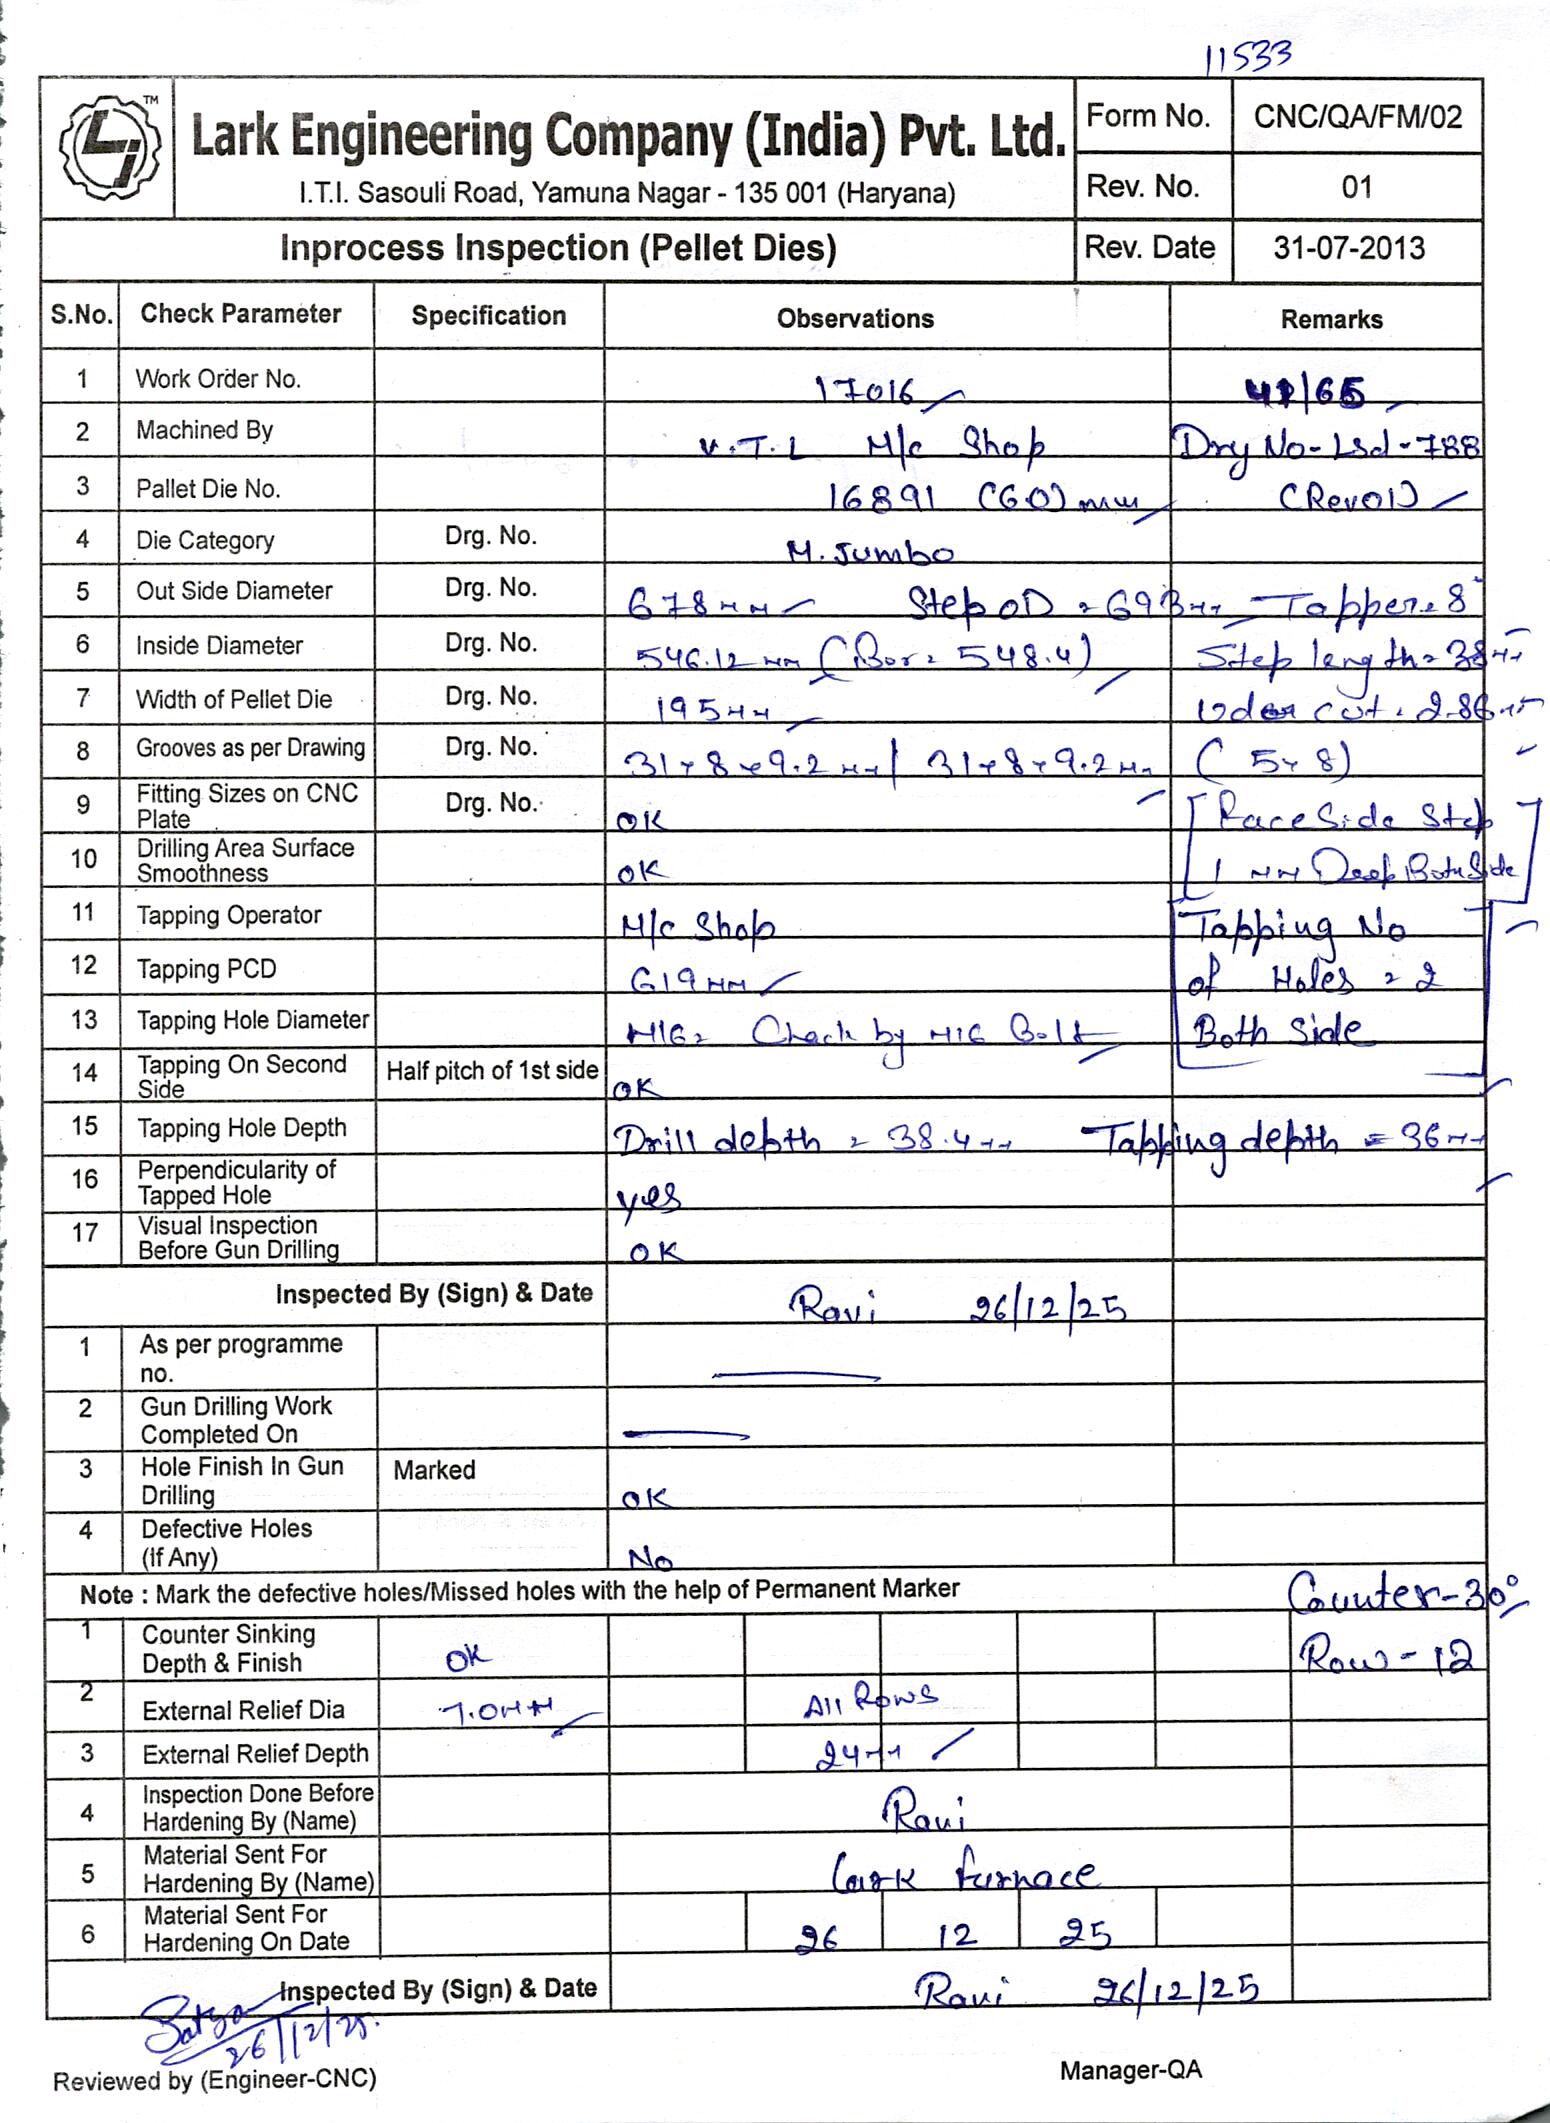 11533
TM
Lark Engineering Company (India) Pvt. Ltd.
I.T.I. Sasouli Road, Yamuna Nagar - 135 001 (Haryana)
Form No. CNC/QA/FM/02
Rev. No. 01
Inprocess Inspection (Pellet Dies) Rev. Date 31-07-2013
S.No. Check Parameter Specification Observations Remarks
1 Work Order No. 17016 41/65
2 Machined By V.T.L M/c Shop Drg No- Lsd - 788
3 Pallet Die No. 16891 (60) mm (Rev01)
4 Die Category Drg. No. M. Jumbo
5 Out Side Diameter Drg. No. 678 mm Step OD = 693 mm Tapper = 8°
6 Inside Diameter Drg. No. 546.12 mm (Bor = 548.4) Step length = 38 mm
7 Width of Pellet Die Drg. No. 195 mm Uder cut = 2.86 mm
8 Grooves as per Drawing Drg. No. 31 x 8 x 9.2 mm / 31 x 8 x 9.2 mm (5 x 8)
9 Fitting Sizes on CNC Plate Drg. No. OK [Face Side Step
10 Drilling Area Surface Smoothness OK 1 mm Deep Both Side]
11 Tapping Operator M/c Shop [Tapping No
12 Tapping PCD 619 mm of Holes = 2
13 Tapping Hole Diameter M16 = Check by M16 Bolt Both Side]
14 Tapping On Second Side Half pitch of 1st side OK
15 Tapping Hole Depth Drill depth = 38.4 mm Tapping depth = 36 mm
16 Perpendicularity of Tapped Hole yes
17 Visual Inspection Before Gun Drilling OK
Inspected By (Sign) & Date Ravi 26/12/25
1 As per programme no. ——
2 Gun Drilling Work Completed On ——
3 Hole Finish In Gun Drilling Marked OK
4 Defective Holes (If Any) No
Note : Mark the defective holes/Missed holes with the help of Permanent Marker Counter-30°
1 Counter Sinking Depth & Finish OK Row - 12
2 External Relief Dia 7.0 mm All Rows
3 External Relief Depth 24 mm
4 Inspection Done Before Hardening By (Name) Ravi
5 Material Sent For Hardening By (Name) Lark furnace
6 Material Sent For Hardening On Date 26 12 25
Inspected By (Sign) & Date Ravi 26/12/25
26/12/25.
Reviewed by (Engineer-CNC) Manager-QA